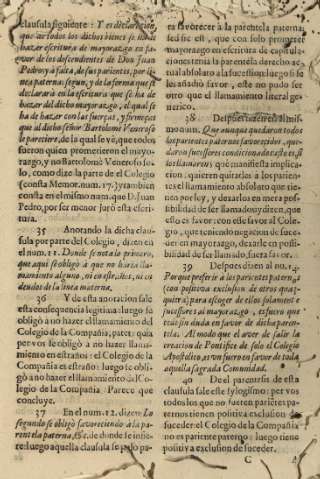 clausula siguiente: Y es declaracion,
que de todos los dichos bienes se ha de
hazer escritura de mayorazgo en fa-
vor de los descendientes de Don Juan
Pedro, y à falta, de sus parientes, por li-
nea paterna segun, y de la forma que se
declararà en la escritura que se ha de
hazer del dicho mayorazgo, el qual se
ha de hazer con las fuerças, y firmezas
que al dicho señor Bartolomè Veneroso
le pareciere, de la qual se vè, que todos
fueron quien prometieron el mayo-
razgo, y no Bartolomè Veneroso so-
lo, como dize la parte de el Colegio
(consta Memor. num. 17.) y tambien
consta en el mismo num. que D. Juan
Pedro, por ser menor jurò esta escri-
tura.
35 Anotando la dicha clau-
sula por parte del Colegio, dizen en
el num. 11. Donde se nota lo primero,
que aqui se obligò à que no haria lla-
mamiento alguno, ni en estraños, ni en
deudos de la linea materna.
36 Y de esta anotacion sale
esta consequencia legitima: luego se
obligò à no hazer el llamamiento del
Colegio de la Compañia; patet: quia
per vos se obligò à no hazer llama-
miento en estraños: el Colegio de la
Compañia es estraño: luego se obli-
gò à no hazer el llamamiento del Co-
legio de la Compañia. Parece que
concluye.
37 En el num. 12. dizen: Lo
segundo se obligò favoreciendo à la pa-
rentela paterna, &c. de donde se infie-
re: luego aquella clausula se puso pa-
ra favorecer à la parentela paterna:
sed sic est, que con solo prometer
mayorazgo en escritura de capitula-
ciones tenia la parentela derecho ac-
tual absoluto à la sucession: luego si se
les añadiò favor, este no pudo ser
otro que el llamamiento literal ge-
nerico.
38 Despues dizen en el mis-
mo num. Que aunque quedaron todos
los parientes paternos favorecidos, que-
daron sucessores condicionados al caso en, si
los llamaren: que manifiesta implica-
cion: quieren quitarles à los parien-
tes el llamamiento absoluto que tie-
nen por ley, y dexarlos en mera pos-
sibilidad de ser llamados; y dizen, que
esto es favor: con esse favor al Cole-
gio, que teniendo negacion de suce-
der en mayorazgo, dexarle en possi-
bilidad de ser llamado, fuera favor.
39 Despues dizen al no. 14.
Porque preferir à los parientes paternos
(con positiva exclusion de otros qua-
quiera) para escoger de ellos solamente el
sucessor al mayorazgo, es fuero que
tras sin duda en favor de dichos paren-
telas. Al modo que el aver de salir la
creacion de Pontifice de solo el Colegio
Apostolico, es un fuero en favor de toda
aquella sagrada Comunidad.
40 De el parentesis de esta
clausula sale este sylogismo: per vos
todos los que no fueren parientes pa-
ternos tienen positiva exclusion de
suceder: el Colegio de la Compañia
no es pariente paterno: luego tiene
positiva exclusion de suceder.
C